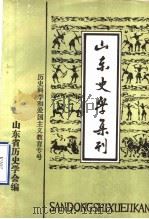 山东史学集刊
历史科学和爱国主义教育专号
山东省历史学会编
SHANDONGSHIXUEJIKAN